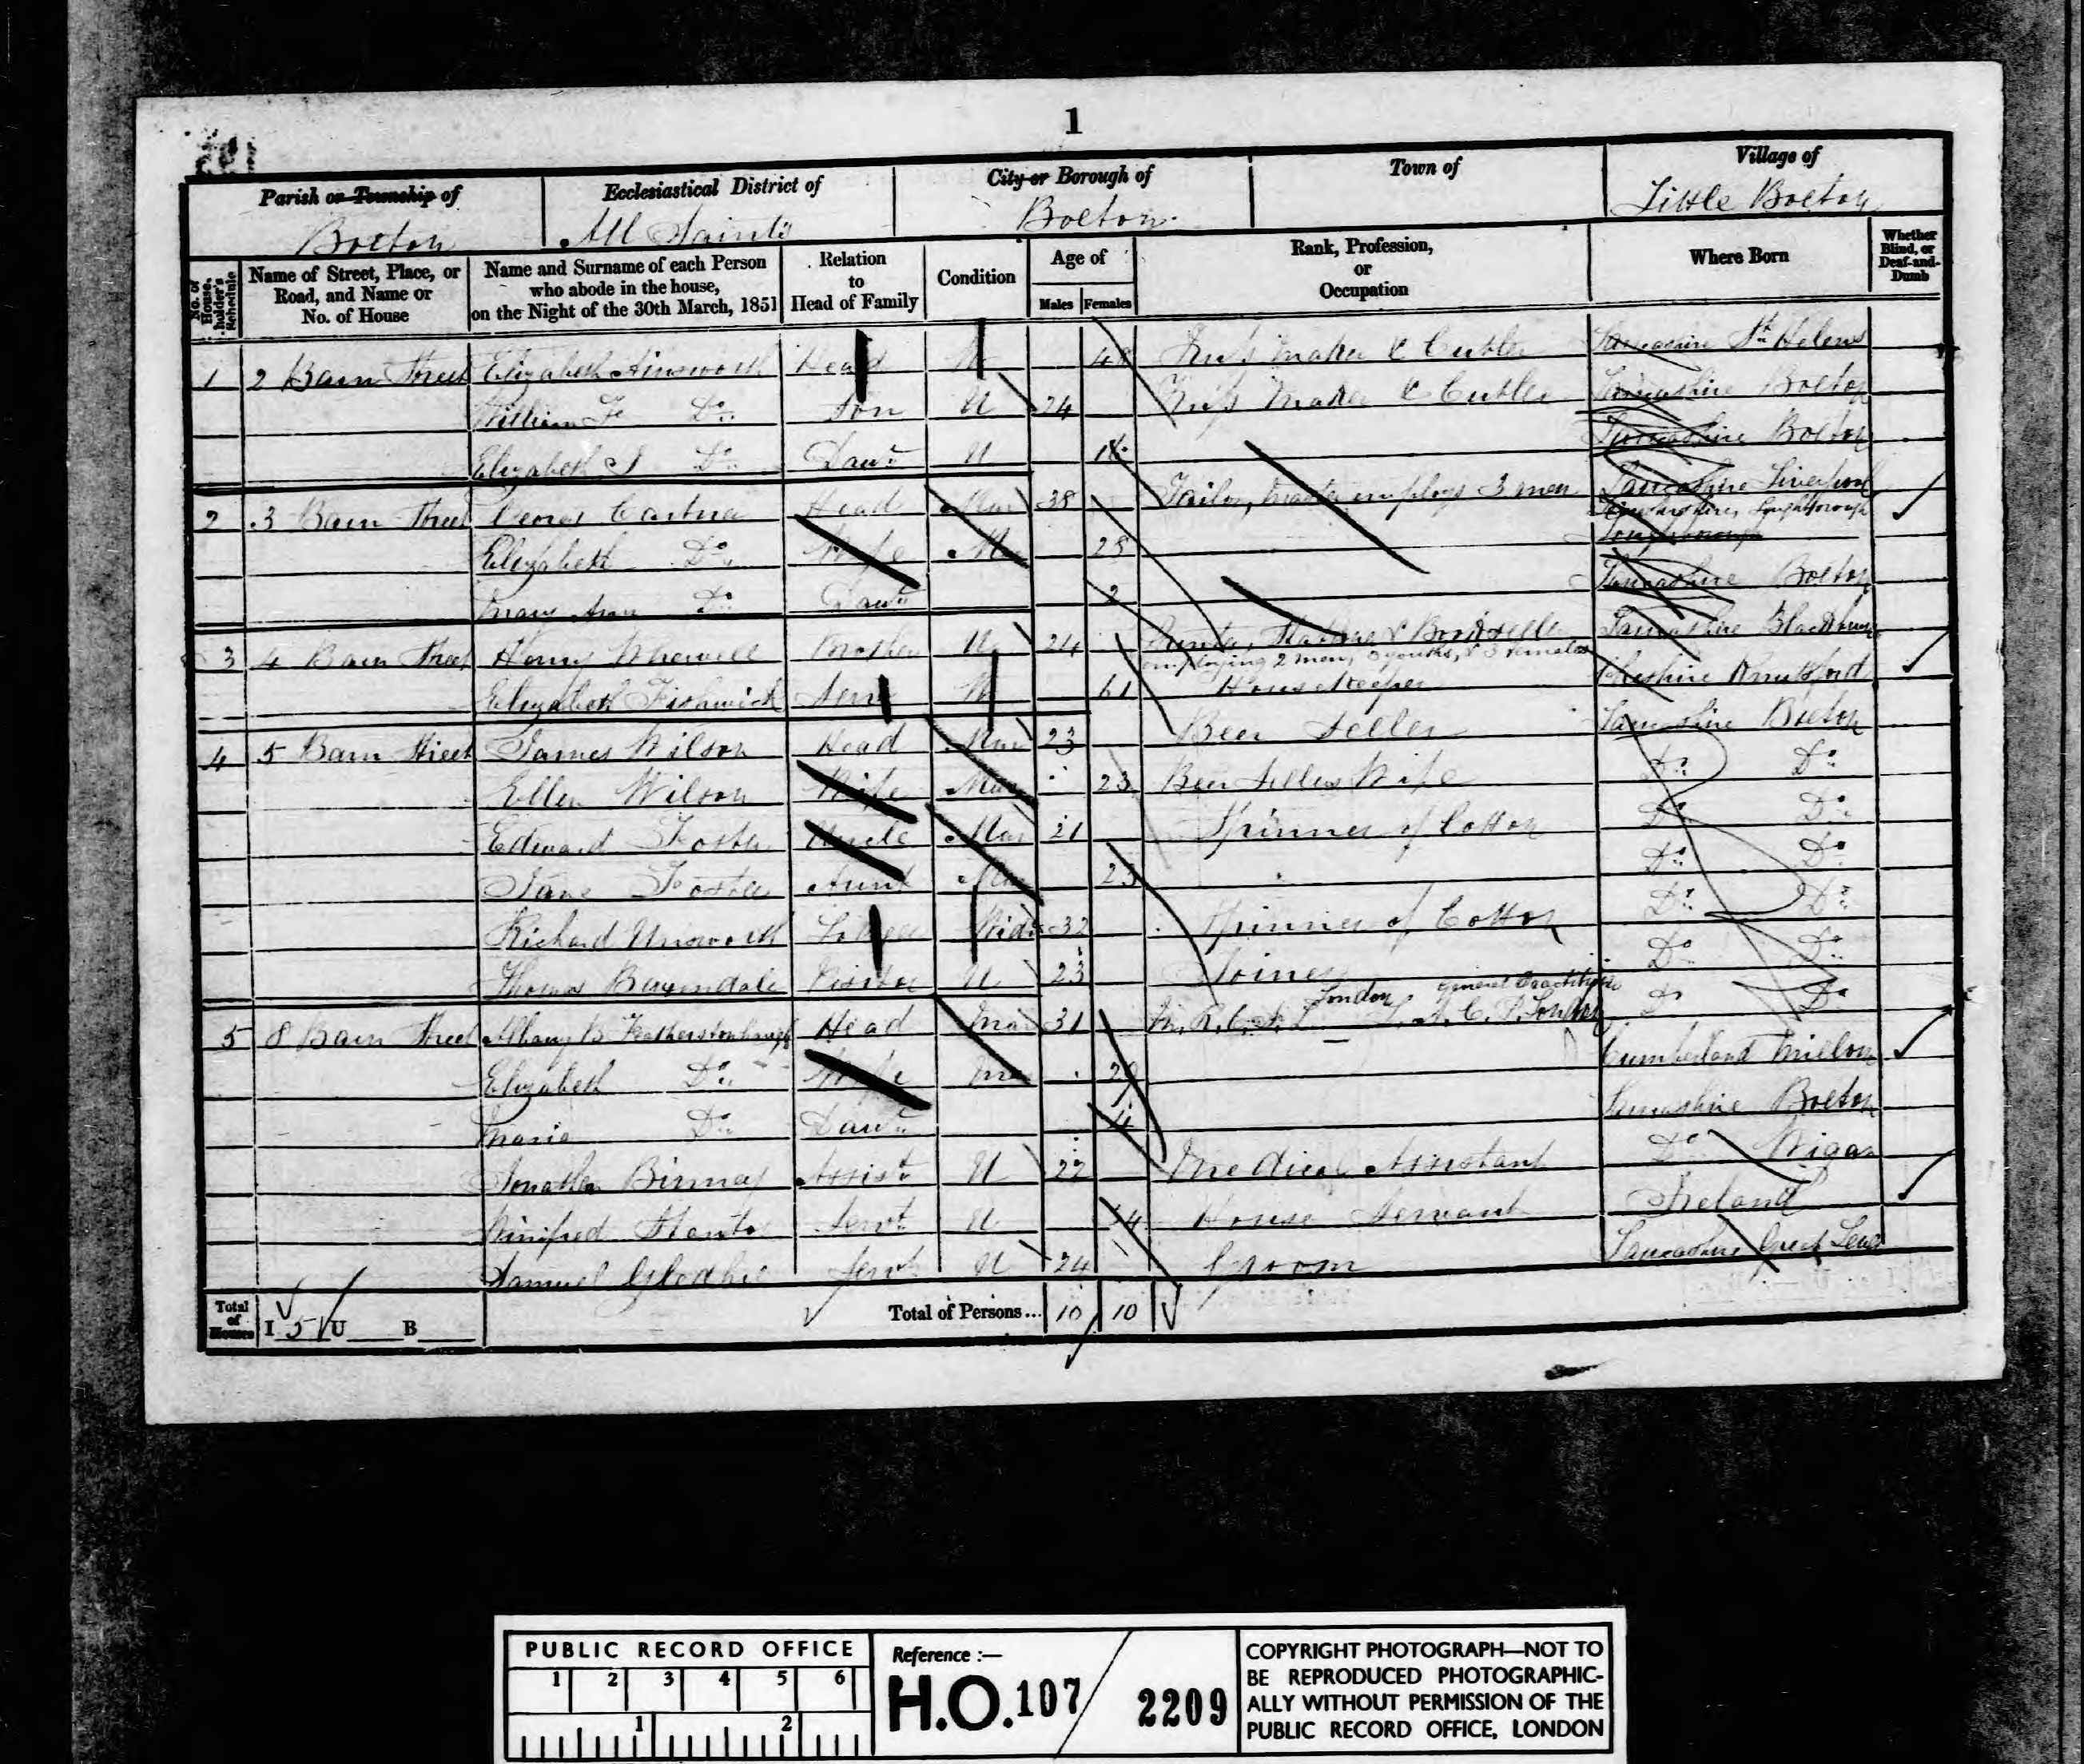 1
Parish or Township of
Ecclesiastical District of
City or Borough of
Town of
Village of
Bolton
All Saints
Bolton
Little Bolton
No. of House-holder's Schedule
Name of Street, Place, or Road, and Name or No. of House
Name and Surname of each Person who abode in the house, on the Night of the 30th March, 1851
Relation to Head of Family
Condition
Age of
Males Females
Rank, Profession, or Occupation
Where Born
Whether Blind, or Deaf-and-Dumb
1 2 Barn Street Elizabeth Ainsworth Head W 48 maker & Cutler Lancashire St Helens
William F Do Son U 24 maker & Cutler Lancashire Bolton
Elizabeth Do Daur U Lancashire Bolton
2 3 Barn Street George Head Mar 38 Tailor, master employs 3 men Lancashire Liverpool
Elizabeth Do Wife M 28 Loughborough
Mary Ann Do Daur 2 Lancashire Bolton
3 4 Barn Street Henry Brother U 24 Printer, Stationer & Bookseller Lancashire Blackburn
employing 2 men, 3 youths, & 3 females
Elizabeth Fishwick Serv W 61 House Keeper Cheshire Knutsford
4 5 Barn Street James Wilson Head Mar 23 Beer Seller Lancashire Bolton
Ellen Wilson Wife Mar 23 Beer Sellers Wife Do Do
Edward Foster Uncle Mar 21 Spinner of Cotton Do Do
Jane Foster Aunt Mar 23 Do Do
Richard Unsworth Lodger Widr 32 Spinner of Cotton Do Do
Thomas Baxendale Visitor U 23 Joiner Do Do
London General Practitioner
5 8 Barn Street Albany Featherstonhaugh Head Mar 31 M.R.C.S.L. London Do Do
Elizabeth Do Wife Mar 29 Cumberland Millom
Maria Do Daur 4 Lancashire Bolton
Jonathan Binney Assist U 22 Medical Assistant Do Wigan
Winifred Servt U House Servant Ireland
Samuel Servt U 24 Groom Lancashire Great Lever
Total of Houses I 5 U B
Total of Persons... 10 10
PUBLIC RECORD OFFICE
1 2 3 4 5 6
1 2
Reference :—
H.O. 107 / 2209
COPYRIGHT PHOTOGRAPH—NOT TO
BE REPRODUCED PHOTOGRAPHIC-
ALLY WITHOUT PERMISSION OF THE
PUBLIC RECORD OFFICE, LONDON